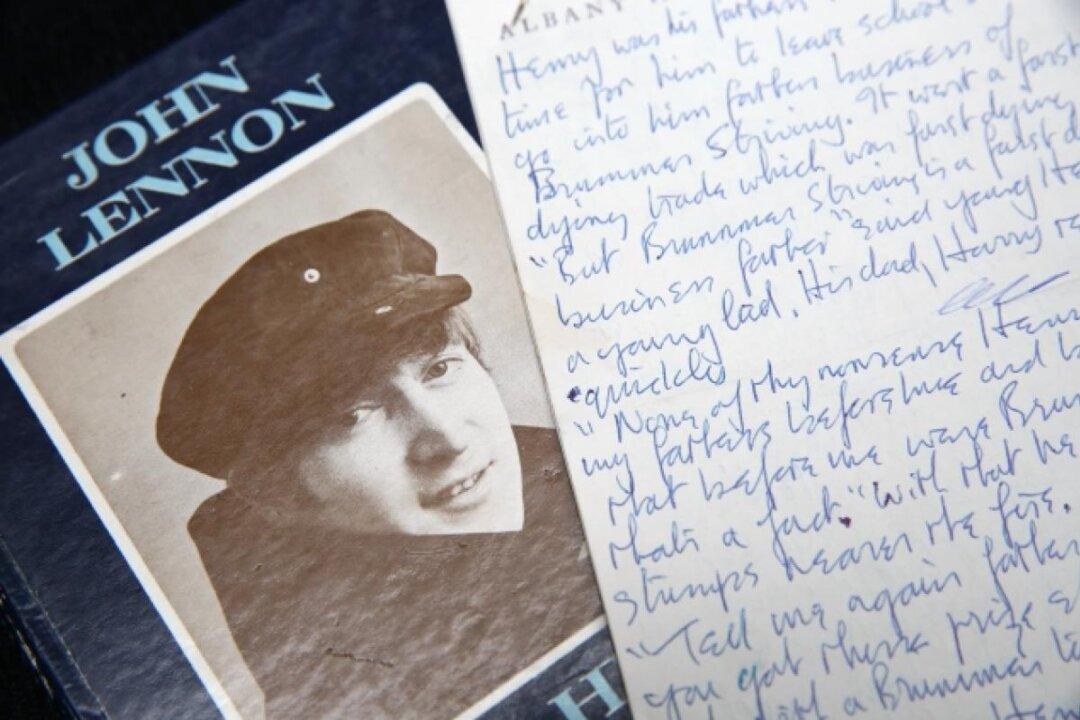 JOHN
LENNON
H
ALBANY
Henry was his fathers
time for him to leave school
go into him fathers business of
Brummer Striving. It wart a farst
dying trade which was farst dying
"But Brummer Striving is a farst d
business farther" said young He
a young lad. His dad, Harry re
quickly
"None of thy nonsense Henr
my fathers before me and b
that before me were Brum
thats a fact." With that he
stumps nearer the fire.
"Tell me again father
you got there prize
with a Brummer